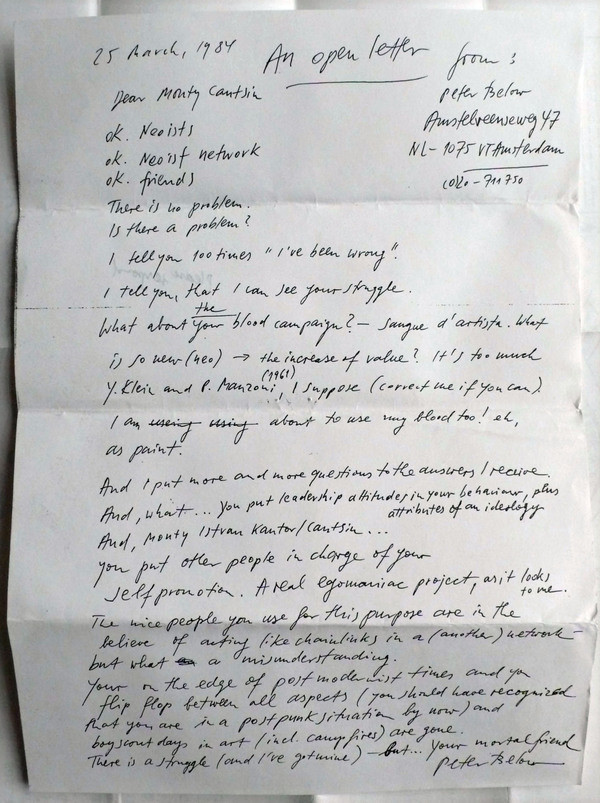 25 March, 1984
An open letter from:
Peter Below
Amstelveenseweg 47
NL-1075 VT Amsterdam
(0)20-711750
Dear Monty Cantsin
OK. Neoists
OK. Neoist network
OK. friends
There is no problem.
Is there a problem?
I tell you 100 times "I've been wrong".
I tell you, that I can see your struggle.
What about your the blood campaign? – sangue d'artista. What
is so new (neo) → the increase of value? It's too much
Y. Klein and P. Manzoni (1961), I suppose (correct me if you can).
I am useing using about to use my blood too! eh,
as paint.
And I put more and more questions to the answers I receive.
And, what ... you put leadership attitudes in your behaviour, plus
attributes of an ideology
And, Monty Istvan Kantor/Cantsin ...
you put other people in charge of your
selfpromotion. A real egomaniac project, as it looks
to me.
The nice people you use for this purpose are in the
believe of acting like chainlinks in a (another) network –
but what a misunderstanding.
Your on the edge of postmodernist times and you
flip flop between all aspects (you should have recognized
that you are in a postpunk situation by now) and
boyscout days in art (incl. campfires) are gone.
There is a struggle (and I've got mine) – but... Your mortal friend
Peter Below